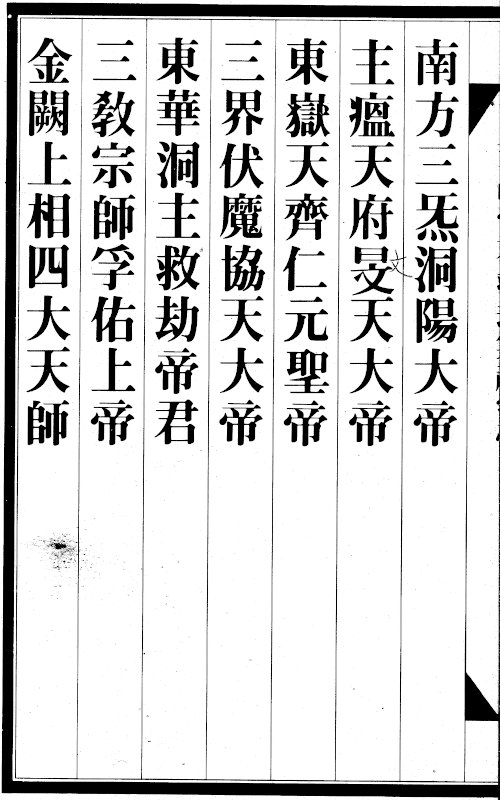 南方三炁洞陽大帝
主瘟天府旻天大帝
東嶽天齊仁元聖帝
三界伏魔協天大帝
東華洞主救劫帝君
三教宗師孚佑上帝
金闕上相四大天師